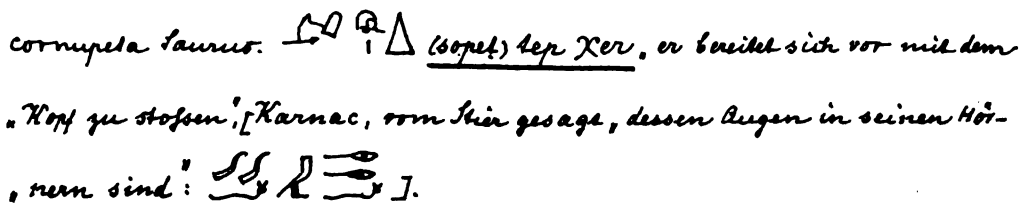 cornupeta Taurus. (sopeṭ) tep χer, er bereitet sich vor mit dem
„Kopf zu stossen“, [Karnac, vom Stier gesagt, dessen Augen in seinen Hör-
„nern sind“: ].